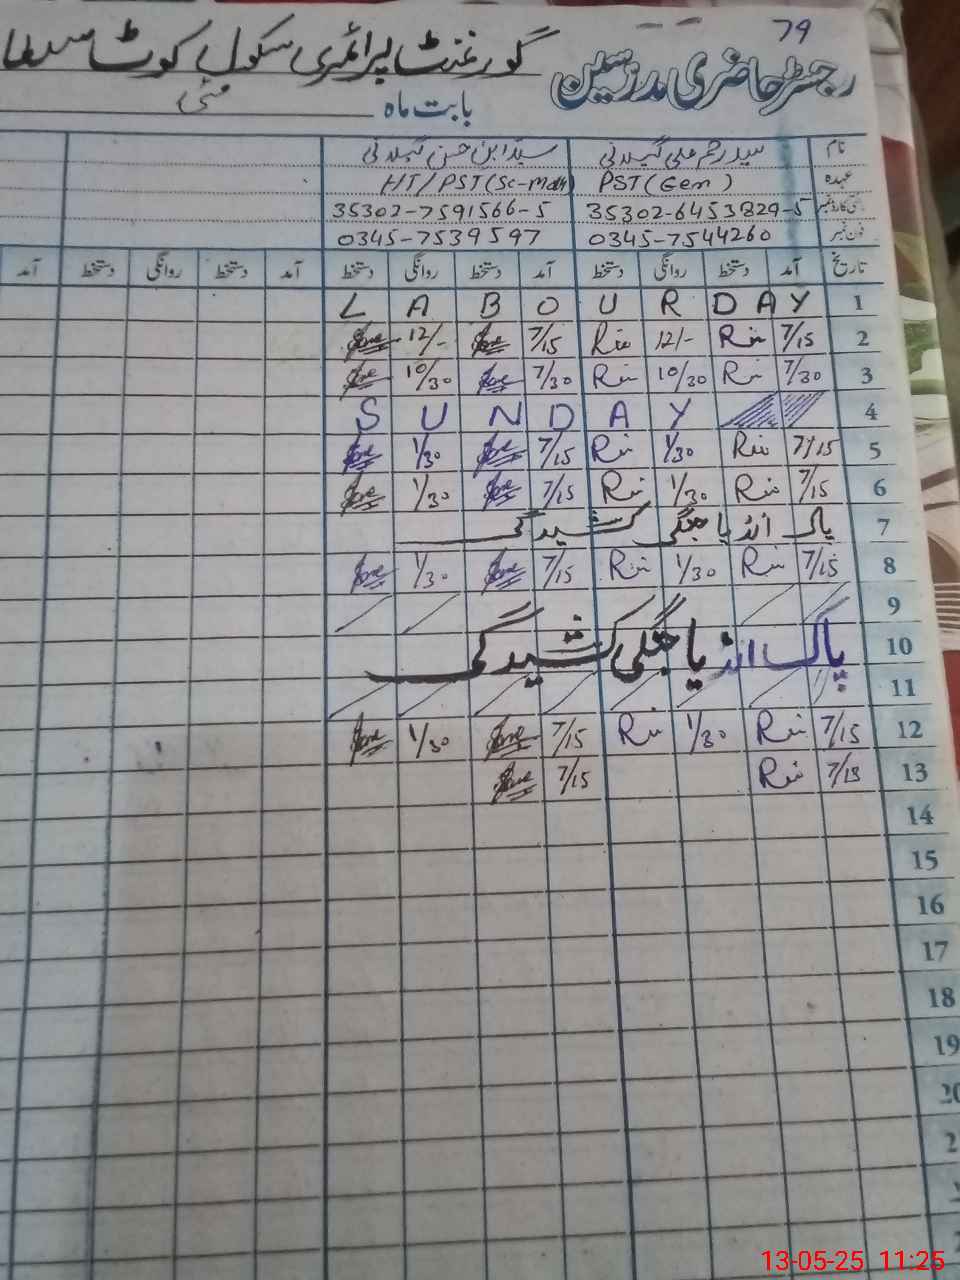 79
رجسٹر حاضری مدرسین گورنمنٹ پرائمری سکول کوٹ
بابت ماہ مئی
نام سید علی گیلانی سید ابن حسن گیلانی
عہدہ PST(Gen) HT/PST(Sc-Math)
شناختی کارڈ نمبر 35302-6453829-5 35302-7591566-5
فون نمبر 0345-7544260 0345-7539597
تاریخ آمد دستخط روانگی دستخط آمد دستخط روانگی دستخط آمد دستخط روانگی دستخط آمد
1 L A B O U R D A Y
2 7/15 12/- 7/15 12/-
3 7/30 10/30 7/30 10/30
4 S U N D A Y
5 7/15 1/30 7/15 1/30
6 7/15 1/30 7/15 1/30
7 پاک انڈیا جنگی کشیدگی
8 7/15 1/30 7/15 1/30
9
10 پاک انڈیا جنگی کشیدگی
11
12 7/15 1/30 7/15 1/30
13 7/15 7/15
14
15
16
17
18
19
20
13-05-25 11:25